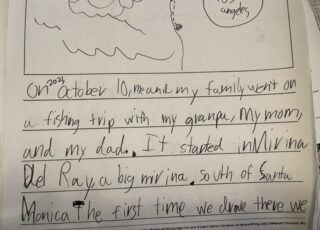 angeles
On 2024 October 10, me and my family went on
a fishing trip with my granpa, my mom,
and my dad. It started in Mirina
Del Ray, a big mirina. south of Santa
Monica The first time we drove there we